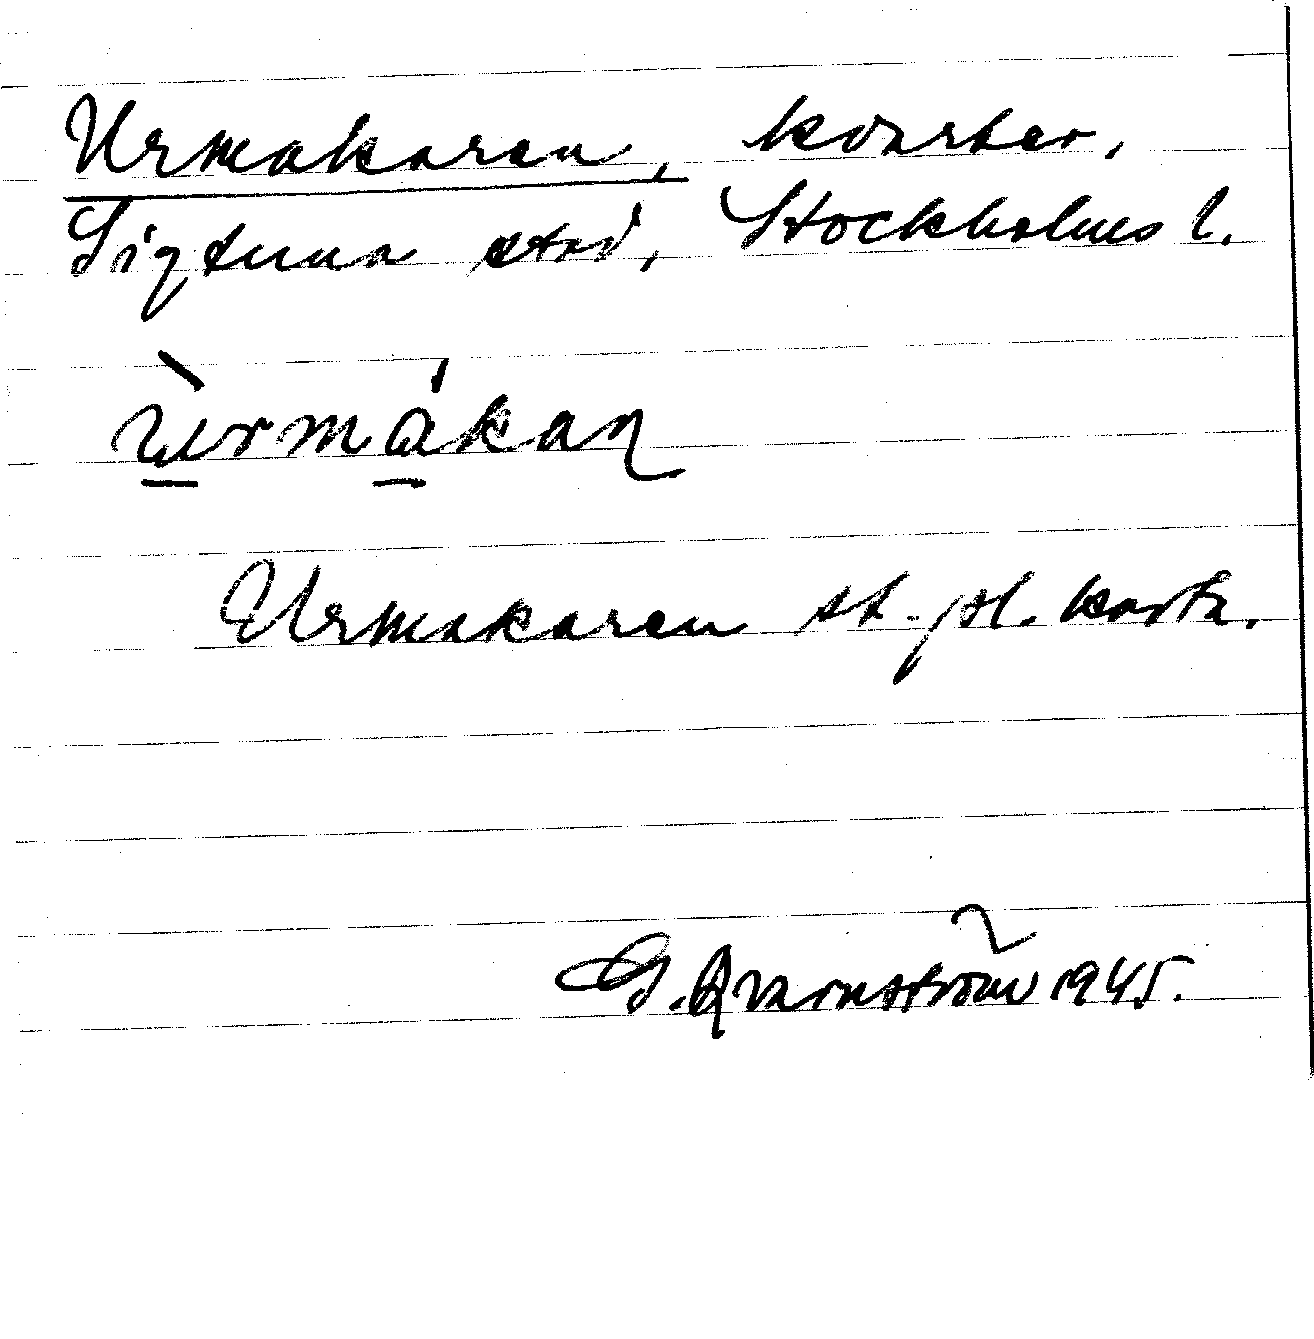 Urmakaren, kvarter,
Sigtuna stad, Stockholms l.
ùrmákaɳ
Urmakaren st. pl. karta.
G. Qvarnström 1945.